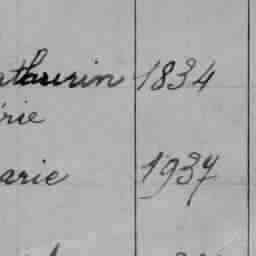 athurin 1834
rie
arie 1937